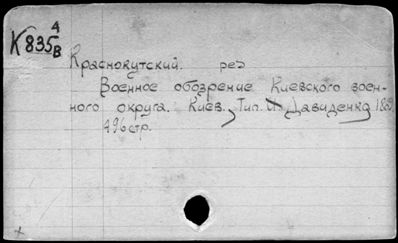 К835 4/В
Краснокутский. ред
Военное обозрение Киевского воен-
ного округа. Киев, Тип. И. Давиденко, 18
496 стр.